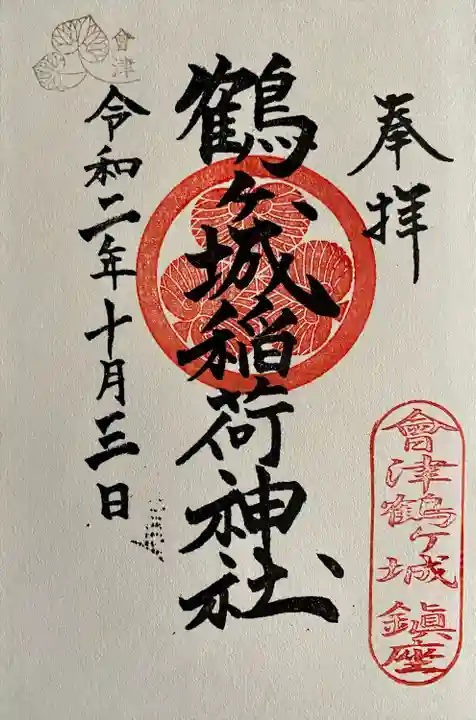 奉拝
會津鶴ヶ城 鎮座
鶴ヶ城稲荷神社
令和二年十月三日
會津